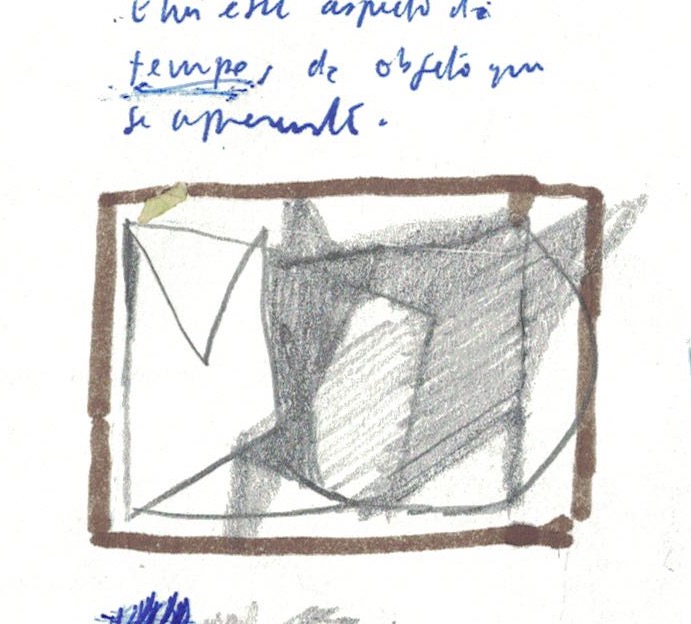 este aspecto de
tempo, de objeto que
se apresenta.